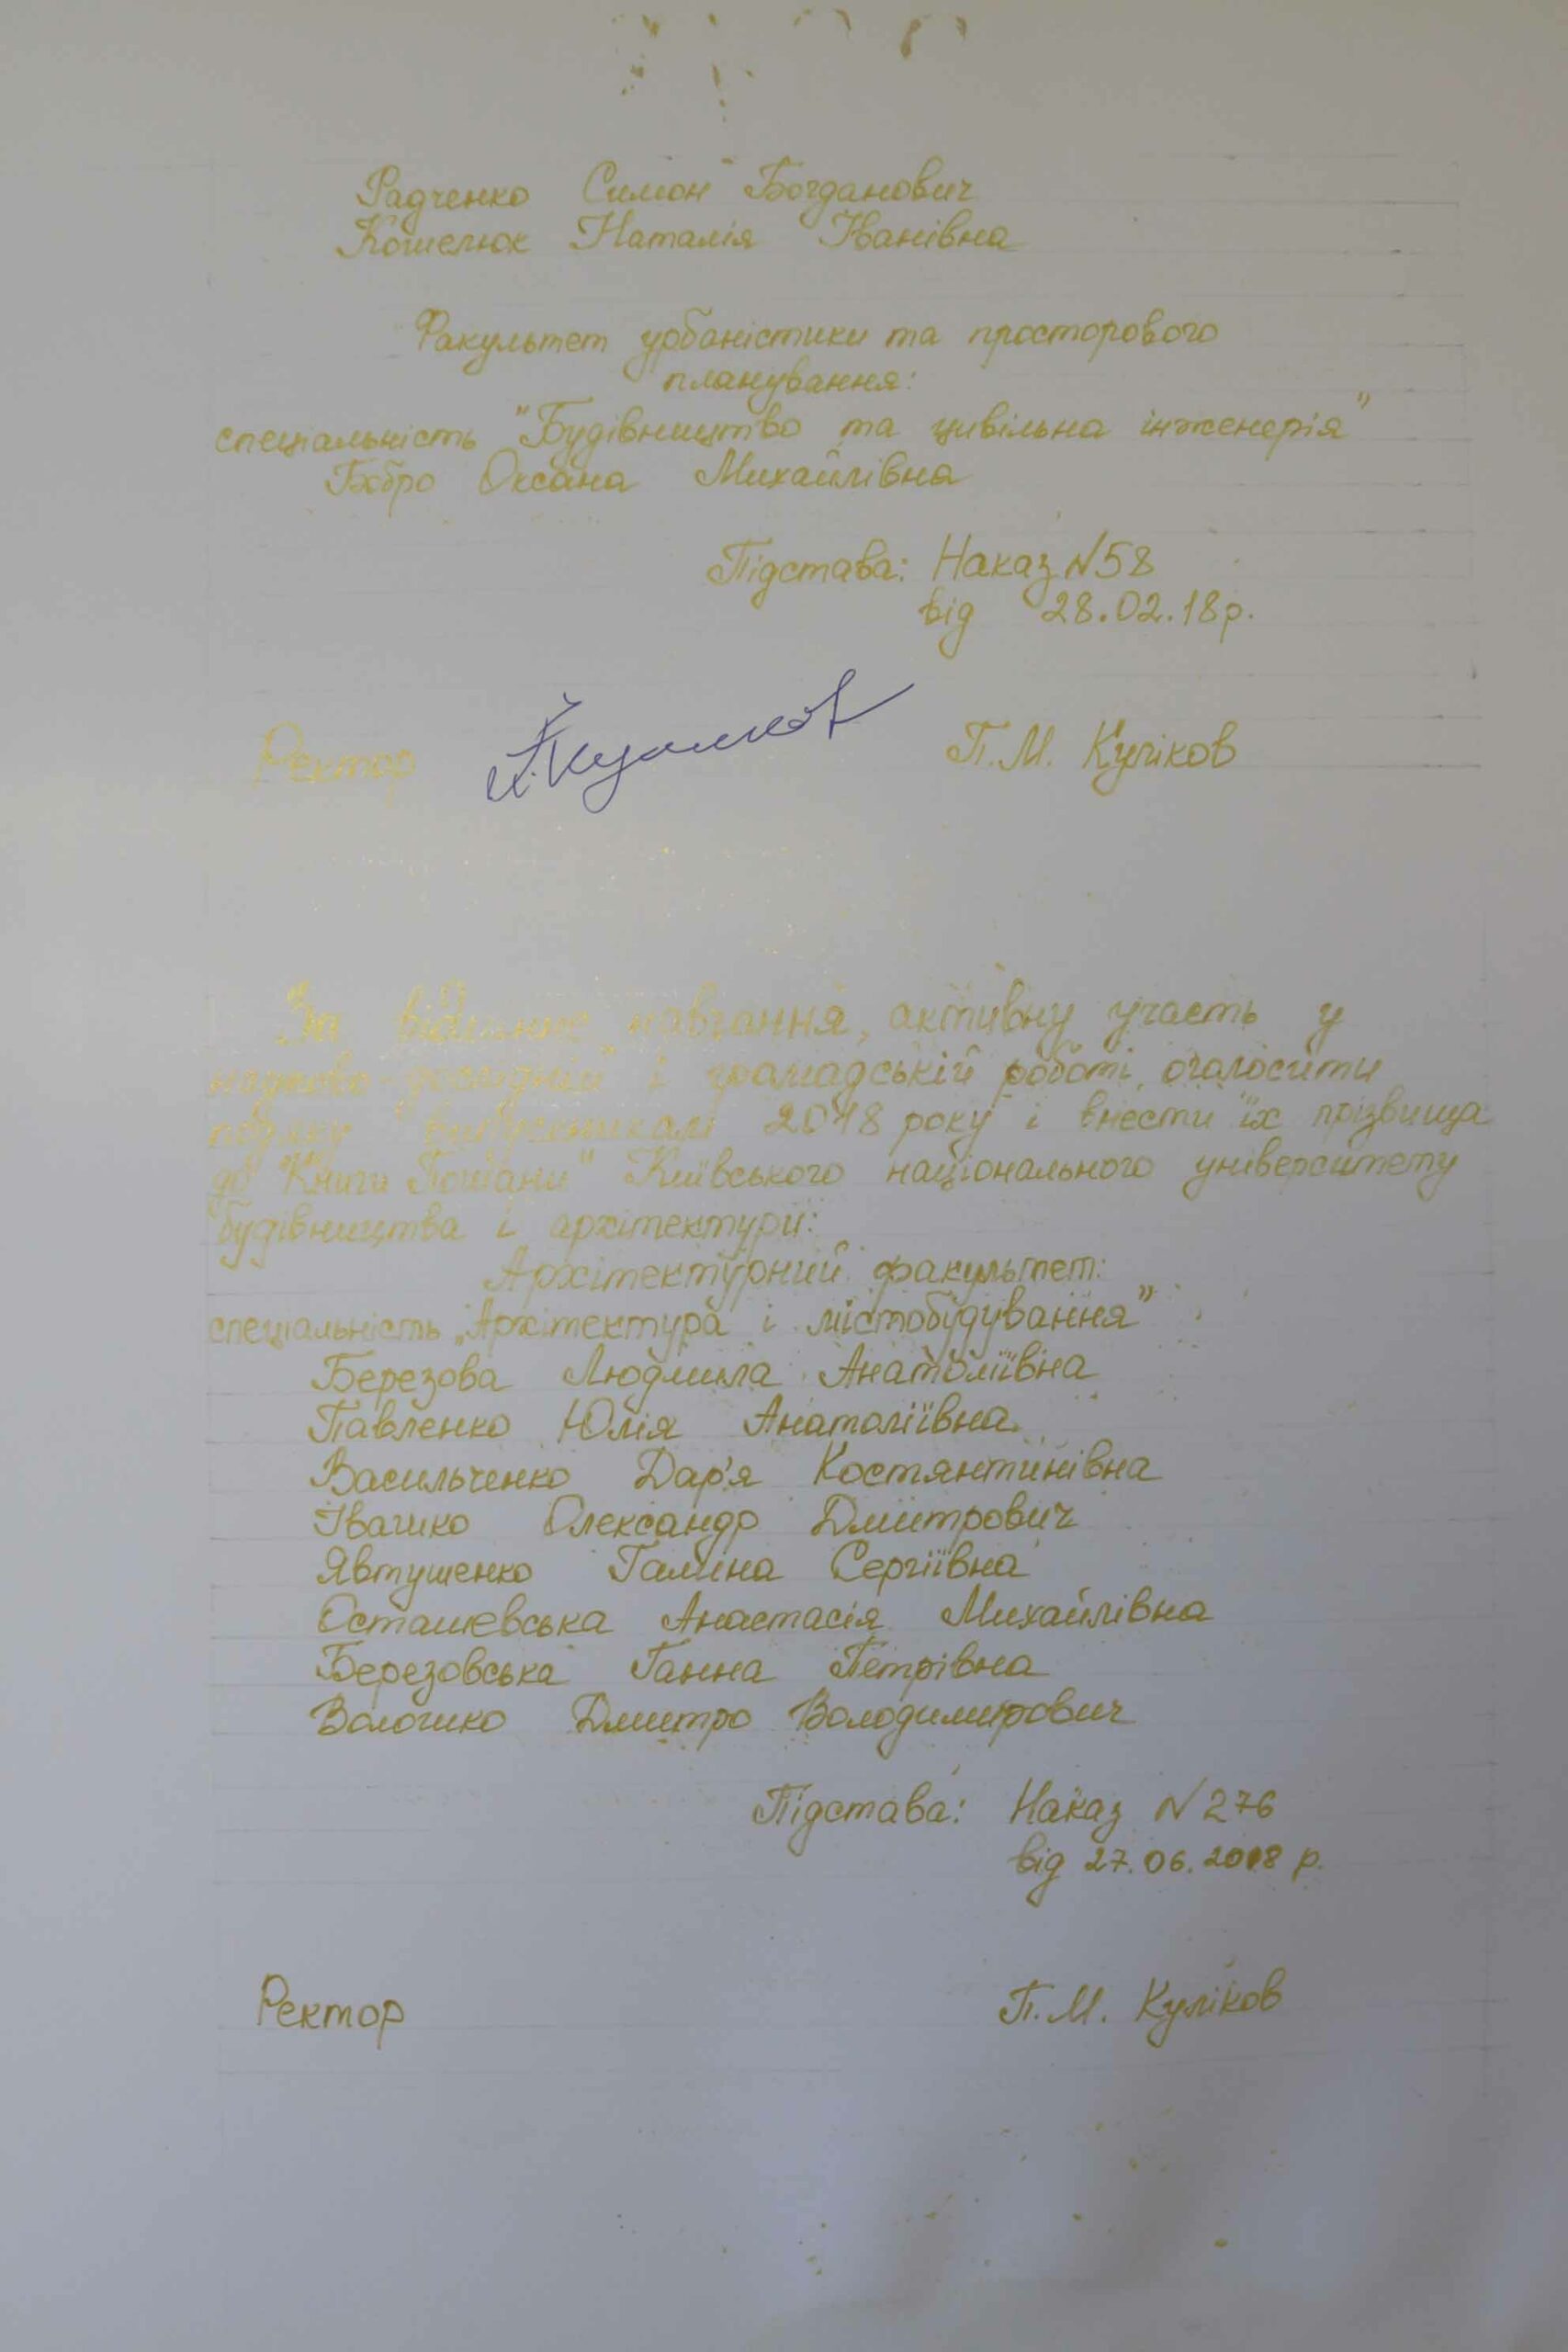 Радченко Симон Богданович
Кошелюк Наталія Іванівна
Факультет урбаністики та просторового
планування:
спеціальність "Будівництво та цивільна інженерія"
Бобро Оксана Михайлівна
Підстава: Наказ №58
від 28.02.18р.
Ректор П.М. Куліков
За відмінне навчання, активну участь у
науково-дослідній і громадській роботі, оголосити
подяку випускникам 2018 року і внести їх прізвища
до "Книги Пошани" Київського національного університету
будівництва і архітектури:
Архітектурний факультет:
спеціальність „Архітектура і містобудування”
Березова Людмила Анатоліївна
Павленко Юлія Анатоліївна
Васильченко Дар'я Костянтинівна
Івашко Олександр Дмитрович
Явтушенко Галина Сергіївна
Осташевська Анастасія Михайлівна
Березовська Ганна Петрівна
Волошко Дмитро Володимирович
Підстава: Наказ №276
від 27.06.2018 р.
Ректор П.М. Куліков